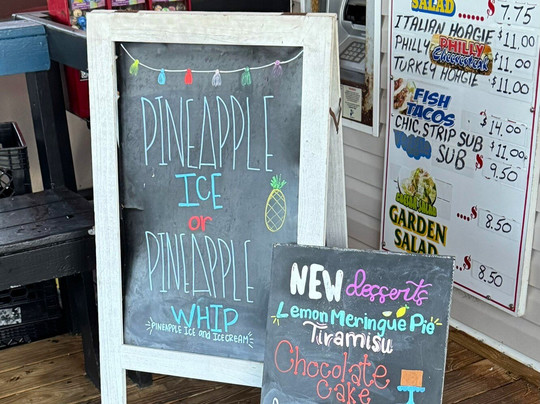 PINEAPPLE
ICE
or
PINEAPPLE
WHIP
PINEAPPLE ICE and ICECREAM
NEW desserts
Lemon Meringue Pie
Tiramisu
Chocolate
Cake
SALAD $ 7.75
ITALIAN HOAGIE $11.00
PHILLY PHILLY Cheesesteak $11.00
TURKEY HOAGIE $11.00
FISH
TACOS $14.00
CHIC. STRIP SUB $11.00
SUB $9.50
$8.50
GARDEN
SALAD $8.50